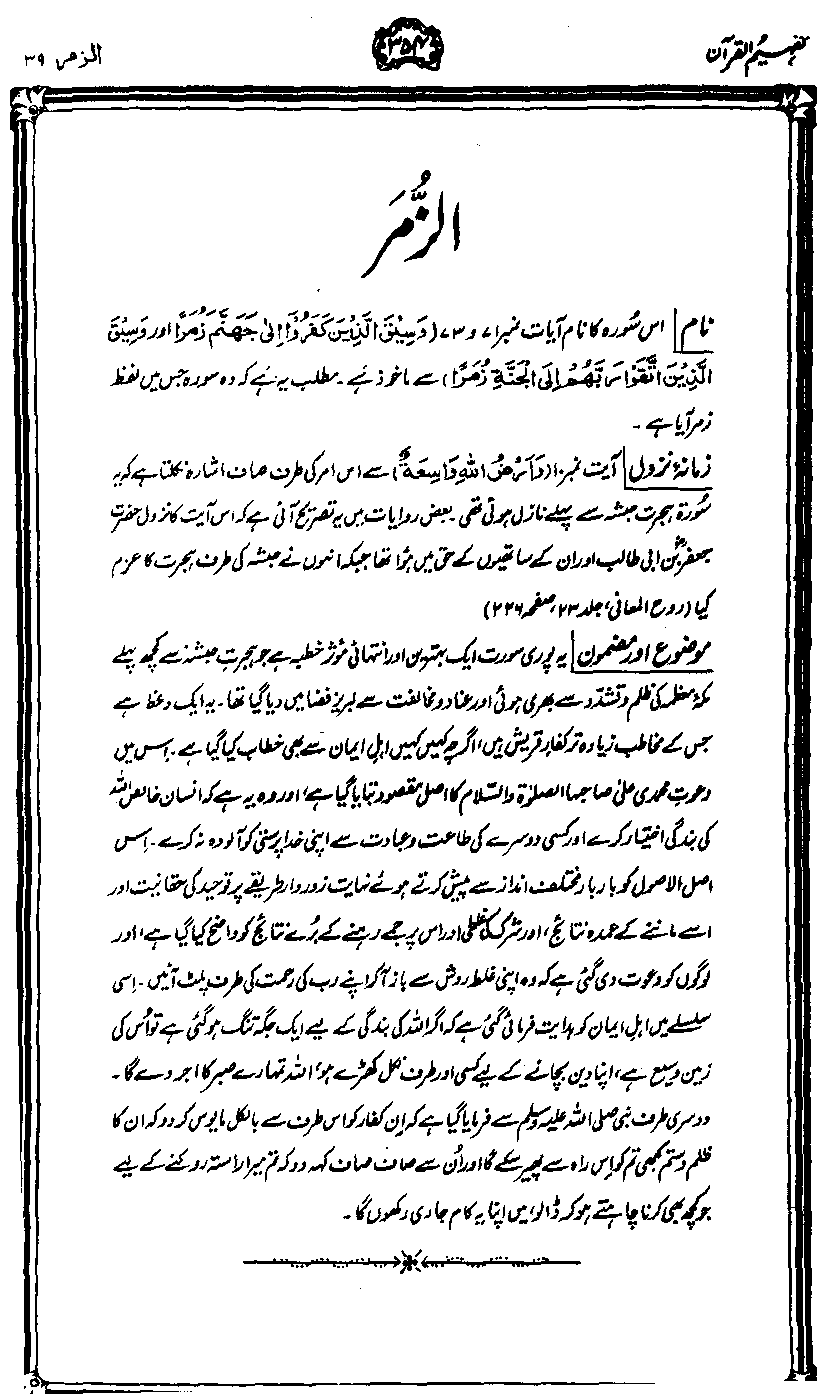 تفہیم القرآن
۳۵۴
الزمر ۳۹
الزُّمَر
نام اس سُورہ کا نام آیات نمبر ۷۱ و ۷۳ (وَسِيْقَ الَّذِيْنَ كَفَرُوْٓا اِلٰى جَهَنَّمَ زُمَرًا اور وَسِيْقَ
الَّذِيْنَ اتَّقَوْا رَبَّهُمْ اِلَى الْجَنَّةِ زُمَرًا) سے ماخوذ ہے۔ مطلب یہ ہے کہ وہ سورہ جس میں لفظ
زمر آیا ہے۔
زمانۂ نزول آیت نمبر ۱۰ (وَاَرْضُ اللهِ وَاسِعَةٌ) سے اس امر کی طرف صاف اشارہ نکلتا ہے کہ یہ
سُورۃ ہجرتِ حبشہ سے پہلے نازل ہوئی تھی۔ بعض روایات میں یہ تصریح آئی ہے کہ اس آیت کا نزول حضرت
جعفرؓ بن ابی طالب اور ان کے ساتھیوں کے حق میں ہُوا تھا جبکہ انہوں نے حبشہ کی طرف ہجرت کا عزم
کیا (روح المعانی، جلد ۲۳، صفحہ ۲۲۶)
موضوع اور مضمون یہ پوری سورت ایک بہترین اور انتہائی مؤثر خطبہ ہے جو ہجرتِ حبشہ سے کچھ پہلے
مکۂ معظمہ کی ظلم و تشدّد سے بھری ہوئی اور عناد و مخالفت سے لبریز فضا میں دیا گیا تھا۔ یہ ایک وعظ ہے
جس کے مخاطب زیادہ تر کفارِ قریش ہیں، اگرچہ کہیں کہیں اہلِ ایمان سے بھی خطاب کیا گیا ہے۔ اِس میں
دعوتِ محمدی علیٰ صاحبہا الصلوٰۃ والسّلام کا اصل مقصود بتایا گیا ہے، اور وہ یہ ہے کہ انسان خالص اللہ
کی بندگی اختیار کرے اور کسی دوسرے کی طاعت و عبادت سے اپنی خدا پرستی کو آلودہ نہ کرے۔ اِس
اصل الاصول کو بار بار مختلف انداز سے پیش کرتے ہوئے نہایت زوردار طریقے پر توحید کی حقانیت اور
اسے ماننے کے عمدہ نتائج، اور شرک کی غلطی اور اس پر جمے رہنے کے بُرے نتائج کو واضح کیا گیا ہے، اور
لوگوں کو دعوت دی گئی ہے کہ وہ اپنی غلط روش سے باز آکر اپنے رب کی رحمت کی طرف پلٹ آئیں۔ اِسی
سلسلے میں اہلِ ایمان کو ہدایت فرمائی گئی ہے کہ اگر اللہ کی بندگی کے لیے ایک جگہ تنگ ہو گئی ہے تو اُس کی
زمین وسیع ہے، اپنا دین بچانے کے لیے کسی اور طرف نکل کھڑے ہو، اللہ تمہارے صبر کا اجر دے گا۔
دوسری طرف نبی صلی اللہ علیہ وسلم سے فرمایا گیا ہے کہ اِن کفار کو اس طرف سے بالکل مایوس کر دو کہ ان کا
ظلم و ستم کبھی تم کو اِس راہ سے پھیر سکے گا اور اُن سے صاف صاف کہہ دو کہ تم میرا راستہ روکنے کے لیے
جو کچھ بھی کرنا چاہتے ہو کر ڈالو، میں اپنا یہ کام جاری رکھوں گا۔